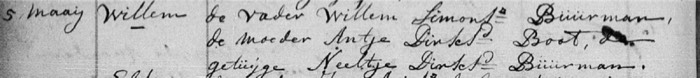 5 Maaij Willem de vader Willem Simonsz Büürman,
de moeder Antje Dirksd Boot, de
getüijge Neeltje Dirksd Büürman.